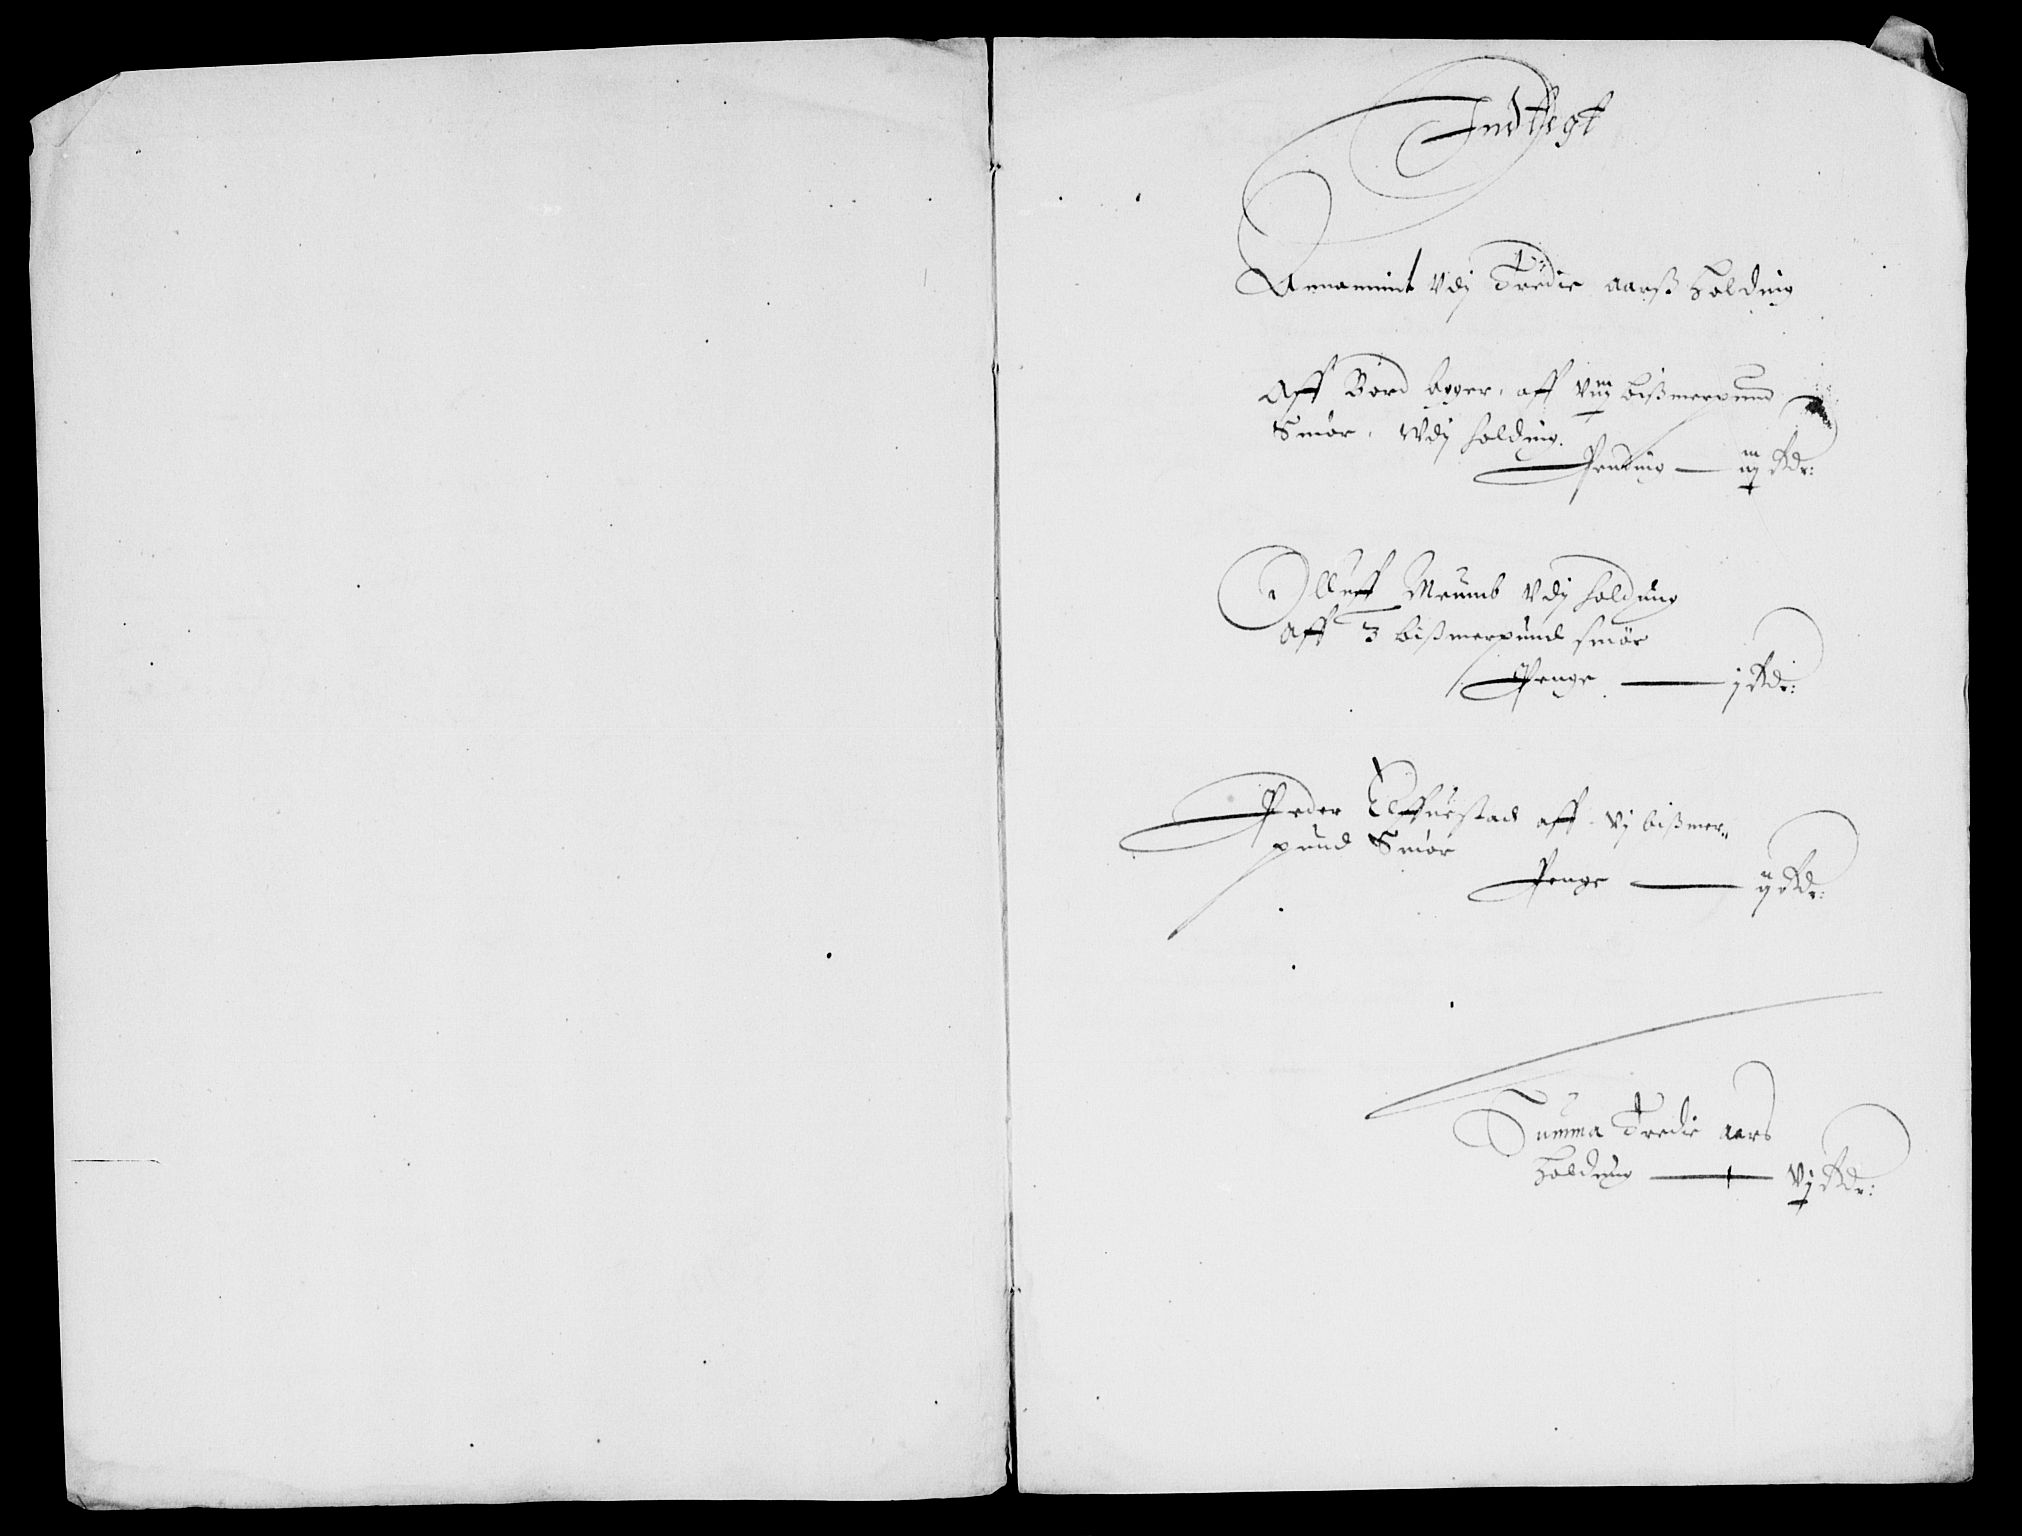 Indtegt
Annammit Vdj Tredie aarß Holding
Aff Bord bøger, aff viij bißmerpund
Smør, Wdj holding.
Pending — iij Rdr:
Olluff Meumb Vdj holdung
Aff 3 bißmerpund smør
Penge — j Rdr:
Peder Elffuestad aff vj bißmer„
pund Smør
Penge — ij Rdr:
Summa Tredie aars
Holdung — vj Rdr: